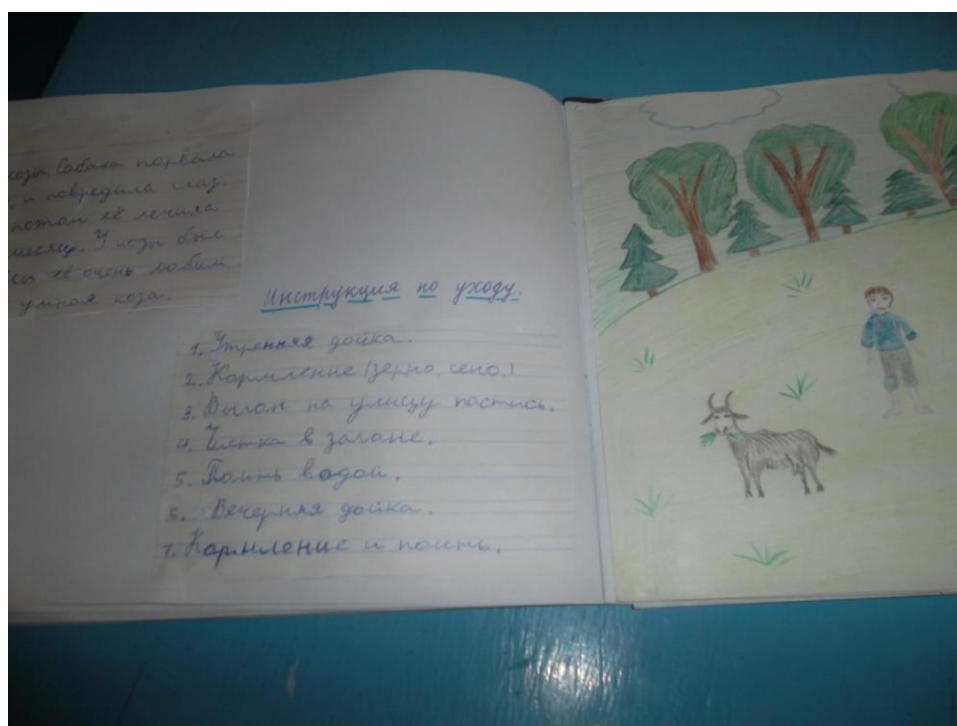 козы. Собака порвала
и повредила глаз.
потом её лечила
месяц. У козы был
её очень любим,
умная коза.
Инструкция по уходу.
1. Утренняя дойка.
2. Кормление (зерно, сено.)
3. Выгон на улицу пастись.
4. Чистка в загоне.
5. Поить водой.
6. Вечерняя дойка.
7. Кормление и поить.